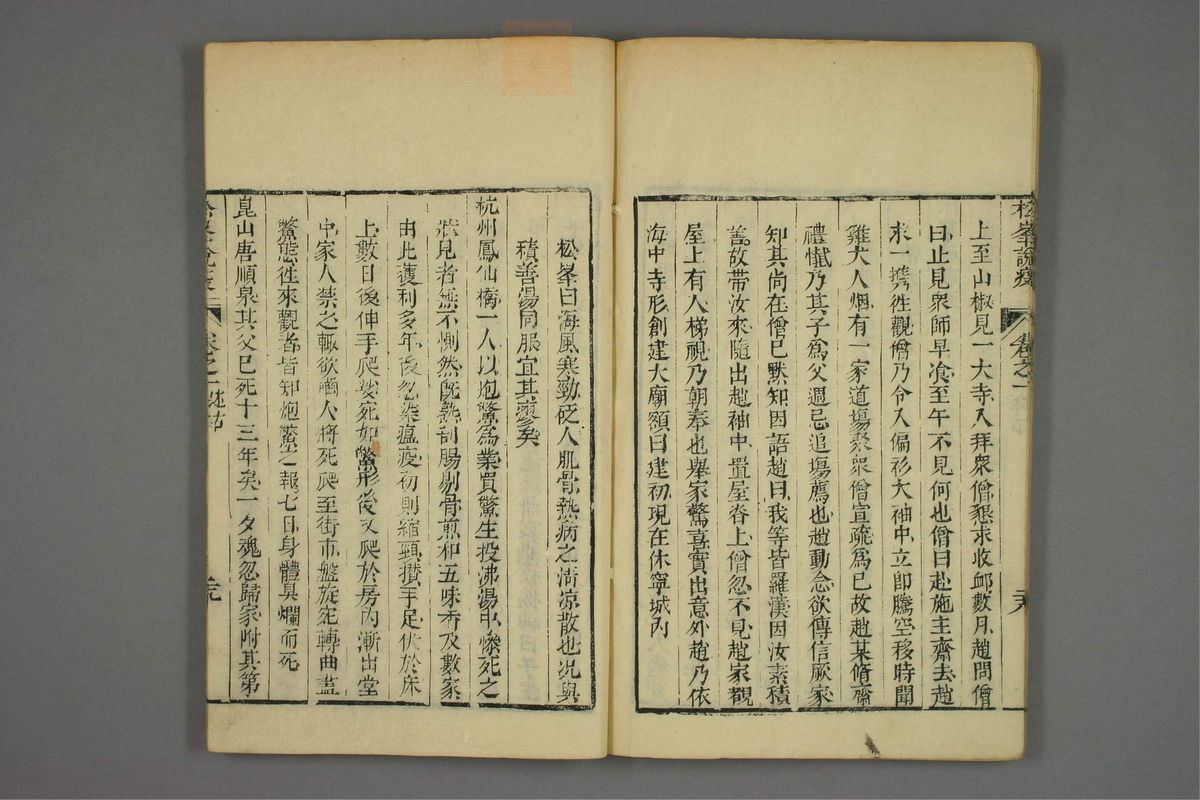 松峯說疫
卷之一
上至山椒見一大寺入拜衆僧懇求收䘏數月趙問僧
曰止見衆師早飡至午不見何也僧曰赴施主齋去趙
求一擕徃觀僧乃令入偏衫大袖中立卽騰空移時聞
雞犬人烟有一家道塲聚衆僧宣疏爲已故趙某脩齋
禮懺乃其子爲父週忌追塲薦也趙動念欲傳信厥家
知其尚在僧巳默知因語趙曰我等皆羅漢因汝素積
善故帶汝來隨出趙袖中置屋脊上僧忽不見趙家覩
屋上有人梯視乃朝奉也舉家驚喜實出意外趙乃依
海中寺形創建大廟額曰建初現在休寧城內
松峯曰海風寒勁砭人肌骨熱病之淸凉散也况與
積善湯同服宜其瘳矣
杭州鳳仙橋一人以炮鱉爲業買鱉生投沸湯中慘死之
狀見者無不惻然旣熟刮腸剔骨煎和五味香及數家
由此獲利多年後忽染瘟疫初則縮頸攅手足伏於床
上數日後伸手爬娑宛如鱉形後又爬於房內漸出堂
中家人禁之輒欲嚙人將死爬至街市盤旋宛轉曲盡
鱉態徃來觀者皆知炮鱉之報七日身體臭爛而死
崑山唐順泉其父巳死十三年矣一夕魂忽歸家附其第
卷之一述古